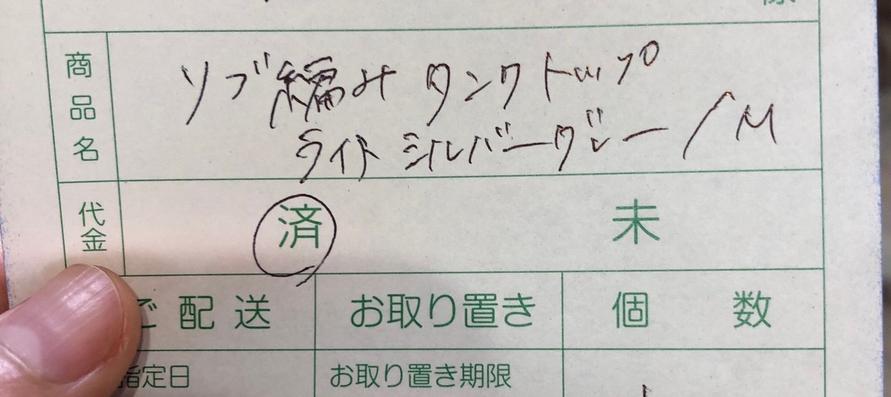 様
商品名
リブ編みタンクトップ
ライトシルバーグレー/M
代金
済 未
ご配送 お取り置き 個数
指定日 お取り置き期限